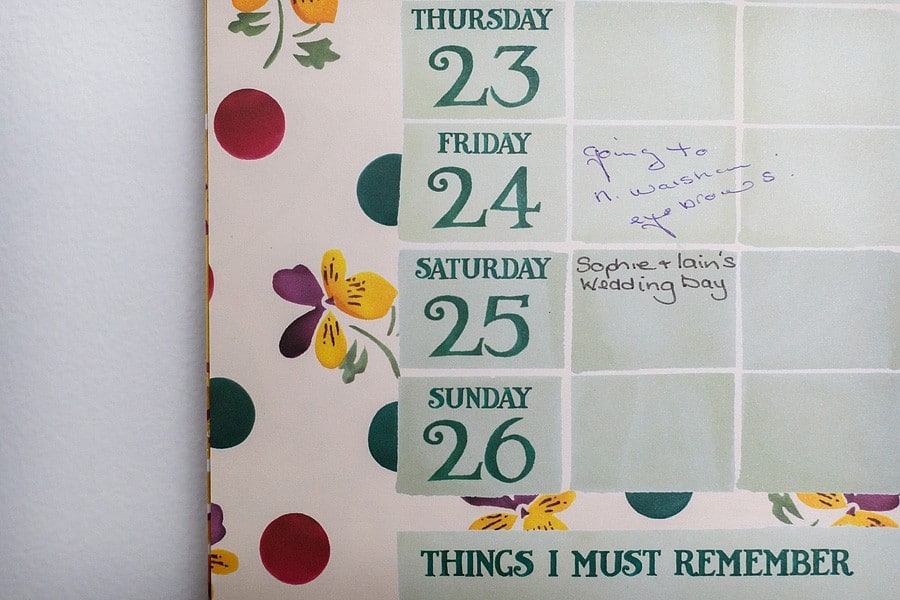 THURSDAY
23
FRIDAY
24
going to
n. walsham
eyebrows.
SATURDAY
25
Sophie + Iain's
Wedding Day
SUNDAY
26
THINGS I MUST REMEMBER